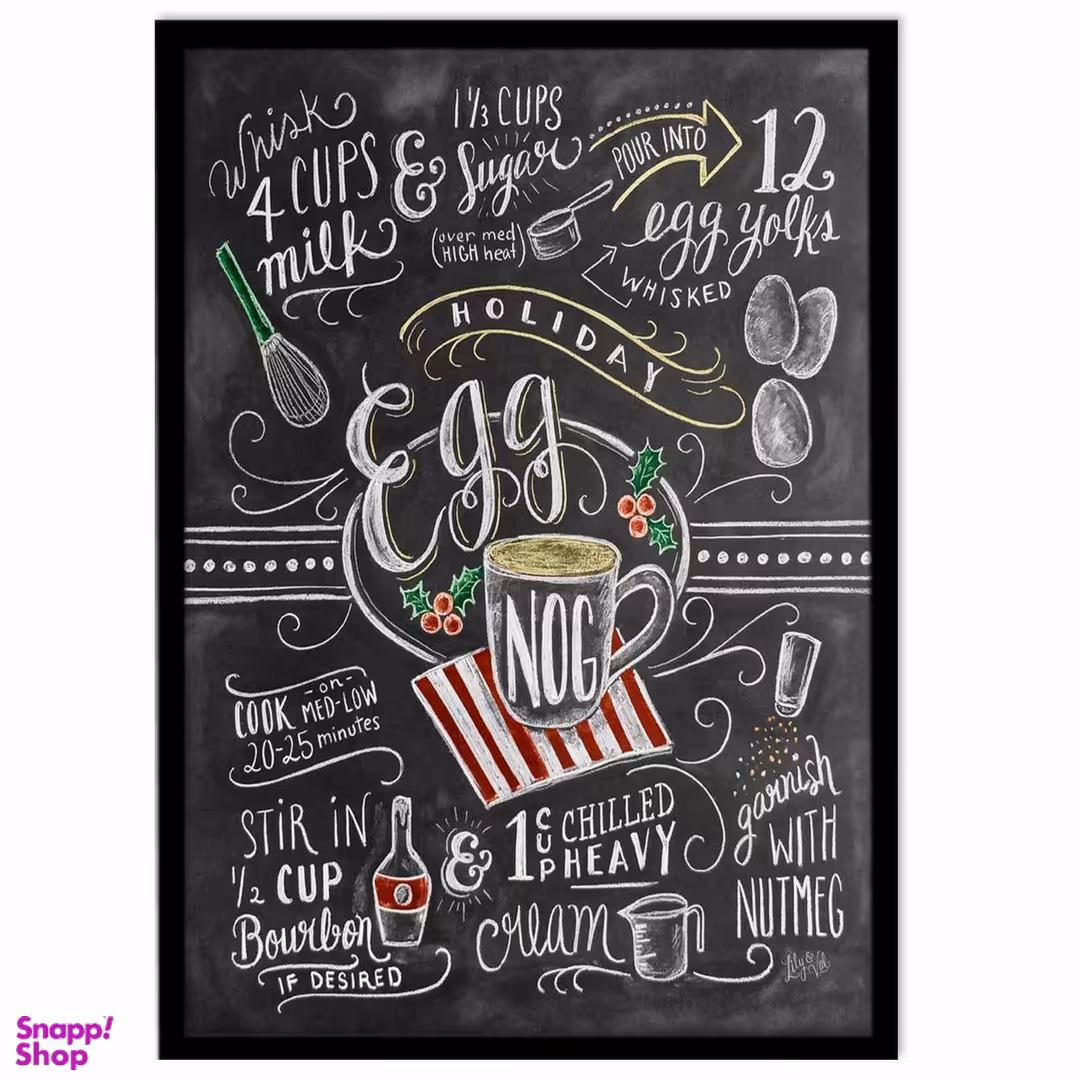 Whisk
4 CUPS
milk
&
1 1/3 CUPS
Sugar
(over med
HIGH heat)
POUR INTO
12
egg yolks
WHISKED
HOLIDAY
Egg
NOG
COOK -on- MED-LOW
20-25 minutes
STIR IN
1/2 CUP
Bourbon
IF DESIRED
&
1 CUP CHILLED
HEAVY
cream
garnish
WITH
NUTMEG
Lily & Val
Snapp!
Shop